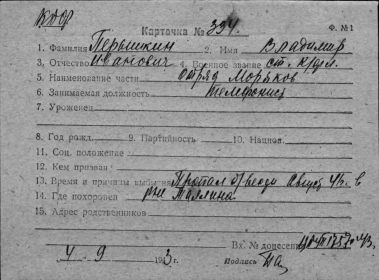 Карточка № 394. Ф. №1
1. Фамилия Перышкин 2. Имя Владимир
3. Отчество Иванович 4. Военное звание ст. кр/м.
5. Наименование части отряд Моряков
6. Занимаемая должность телефонист
7. Уроженец
8. Год рожд. 9. Партийность 10. Национ.
11. Соц. положение
12. Кем призван
13. Время и причины выбытия Пропал б/вести Август 43 г. в
14. Где похоронен р-не
15. Адрес родственников
4 9 1943 г. Вх. № донесения
Подпись